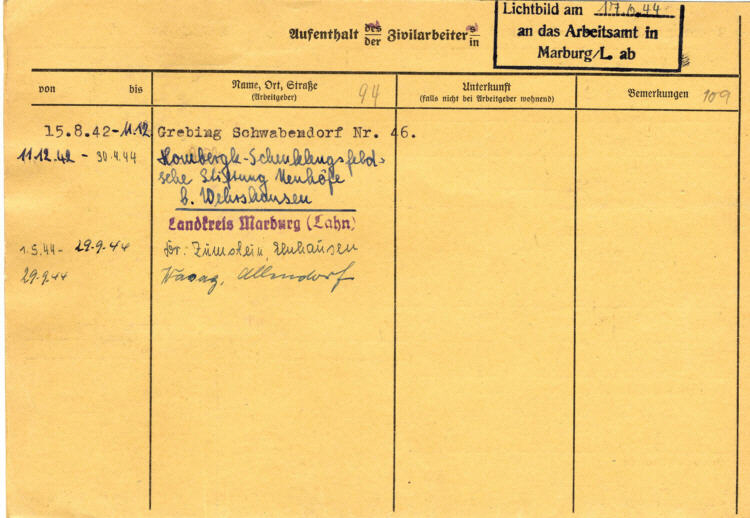 Lichtbild am 17.6.44
an das Arbeitsamt in
Marburg/L. ab
Aufenthalt des/der Zivilarbeiters/in
von bis
Name, Ort, Straße
(Arbeitgeber)
94
Unterkunft
(falls nicht bei Arbeitgeber wohnend)
Bemerkungen 109
15.8.42-11.12 Grebing Schwabendorf Nr. 46.
11.12.42 - 30.4.44 Hombergk-Schenklengsfeld-
sche Stiftung Neuhöfe
b. Wehrshausen
Landkreis Marburg (Lahn)
1.5.44- 29.9.44 Dr. Zumstein,
29.9.44 Wasag, Allendorf